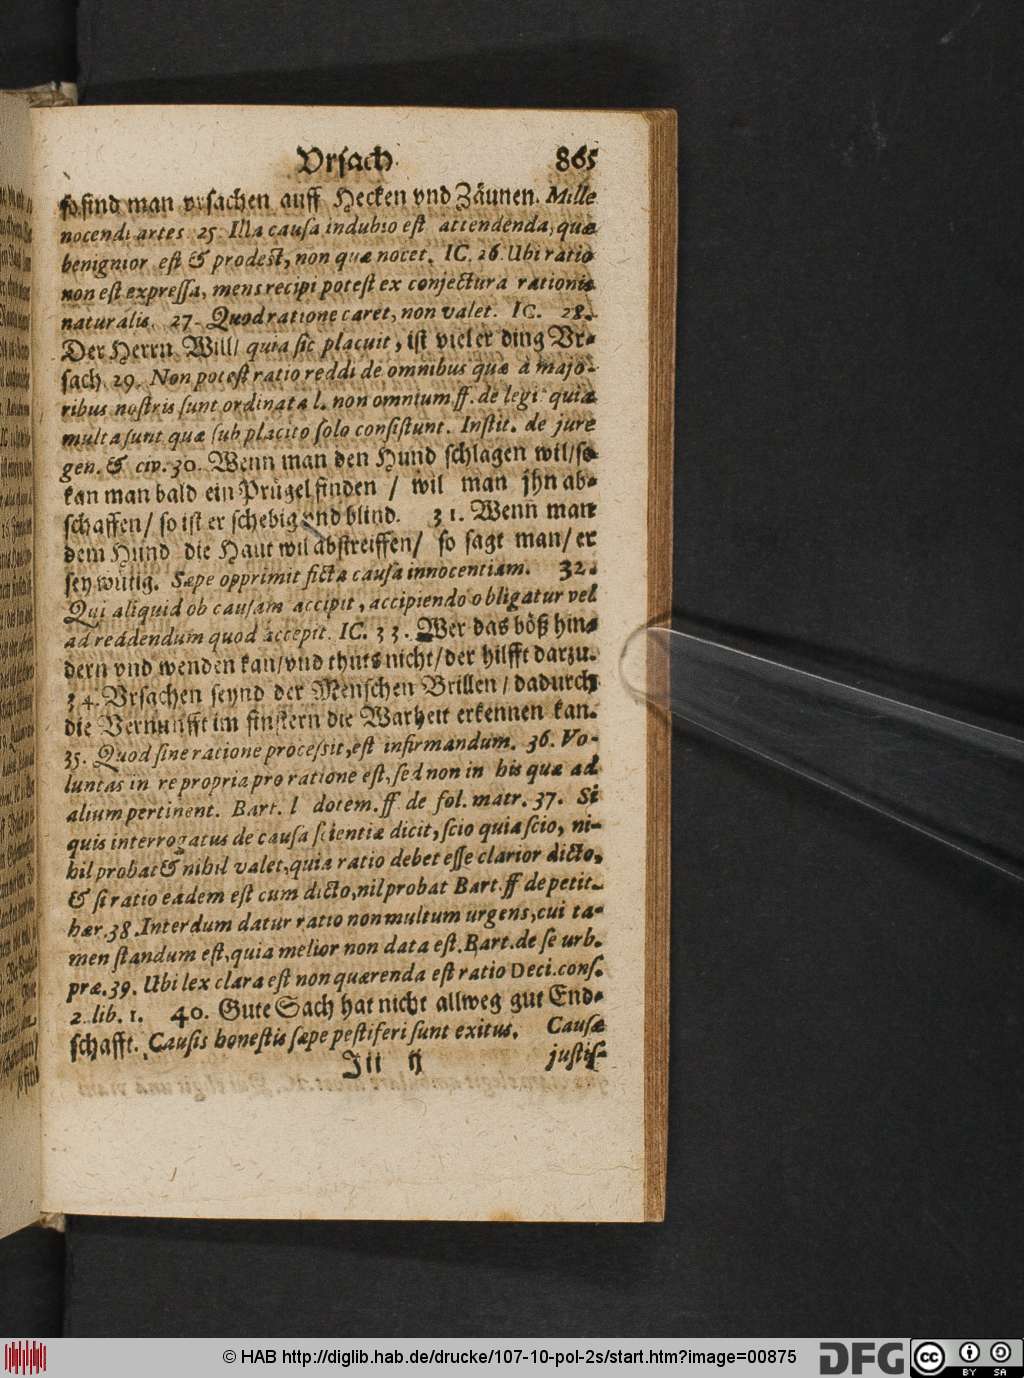 Vrsach 865
so find man vrsachen auff Hecken vnd Zäunen. Mille
nocendi artes 25. Illa causa indubio est attendenda, quæ
benignior est & prodest, non quæ nocet. IC. 26. Ubi ratio
non est expressa, mens recipi potest ex conjectura rationis
naturalis. 27. Quod ratione caret, non valet. IC. 28.
Der Herrn Will/ quia sic placuit, ist vieler ding Vr-
sach. 29. Non potest ratio reddi de omnibus quæ à majo-
ribus nostris sunt ordinata l. non omnium ff. de legi quia
multa sunt quæ sub placito solo consistunt. Instit. de jure
gen. & civ. 30. Wenn man den Hund schlagen wil/ so
kan man bald ein Prügel finden / wil man jhn ab-
schaffen/ so ist er schebig vnd blind. 31. Wenn man
dem Hund die Haut wil abstreiffen/ so sagt man/ er
sey wütig. Sæpe opprimit ficta causa innocentiam. 32.
Qui aliquid ob causam accipit, accipiendo obligatur vel
ad reddendum quod accepit. IC. 33. Wer das böß hin-
dern vnd wenden kan/ vnd thuts nicht/ der hilfft darzu.
34. Vrsachen seynd der Menschen Brillen / dadurch
die Vernunfft im finstern die Warheit erkennen kan.
35. Quod sine ratione processit, est infirmandum. 36. Vo-
luntas in re propria pro ratione est, sed non in his quæ ad
alium pertinent. Bart. l dotem. ff de sol. matr. 37. Si
quis interrogatus de causa scientiæ dicit, scio quia scio, ni-
hil probat & nihil valet, quia ratio debet esse clarior dicto,
& si ratio eadem est cum dicto, nil probat Bart. ff de petit.
hær. 38. Interdum datur ratio non multum urgens, cui ta-
men standum est, quia melior non data est. Bart. de se urb.
præ. 39. Ubi lex clara est non quærenda est ratio Deci. cons.
2. lib. 1. 40. Gute Sach hat nicht allweg gut End-
schafft. Causis honestis sæpe pestiferi sunt exitus. Causæ
Iii ij justis-
© HAB http://diglib.hab.de/drucke/107-10-pol-2s/start.htm?image=00875
DFG
cc BY SA